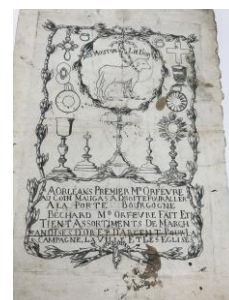 A ORLEANS PREMIER Mᴰ ORFEVRE
AU COIN MAUGAS A DROITE POUR ALLER
A LA PORTE BOURGOGNE
BECHARD Mᴰ ORFEVRE FAIT ET
TIENT ASSORTIMENTS DE MARCH
ANDISES D'OR ET D'ARGENT POUR LA
CAMPAGNE LA VILLE ET LES EGLISE